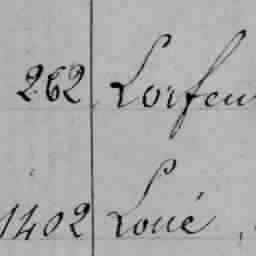 262 Lorfeu
1402 Loué